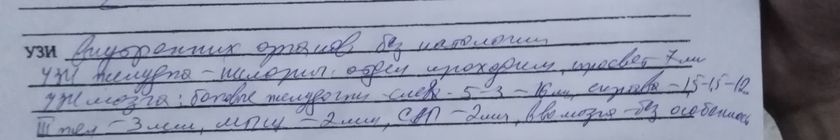 УЗИ внутренних органов без патологии
УЗИ желудка - пилорич. отдел проходим, просвет 7 мм
УЗИ мозга: боковые желудочки слева - 5 - 3 - 16 мм, справа - 1,5 - 1,5 - 12
III жел - 3 мм, МПЩ - 2 мм, САП - 2 мм, в-во мозга - без особенност